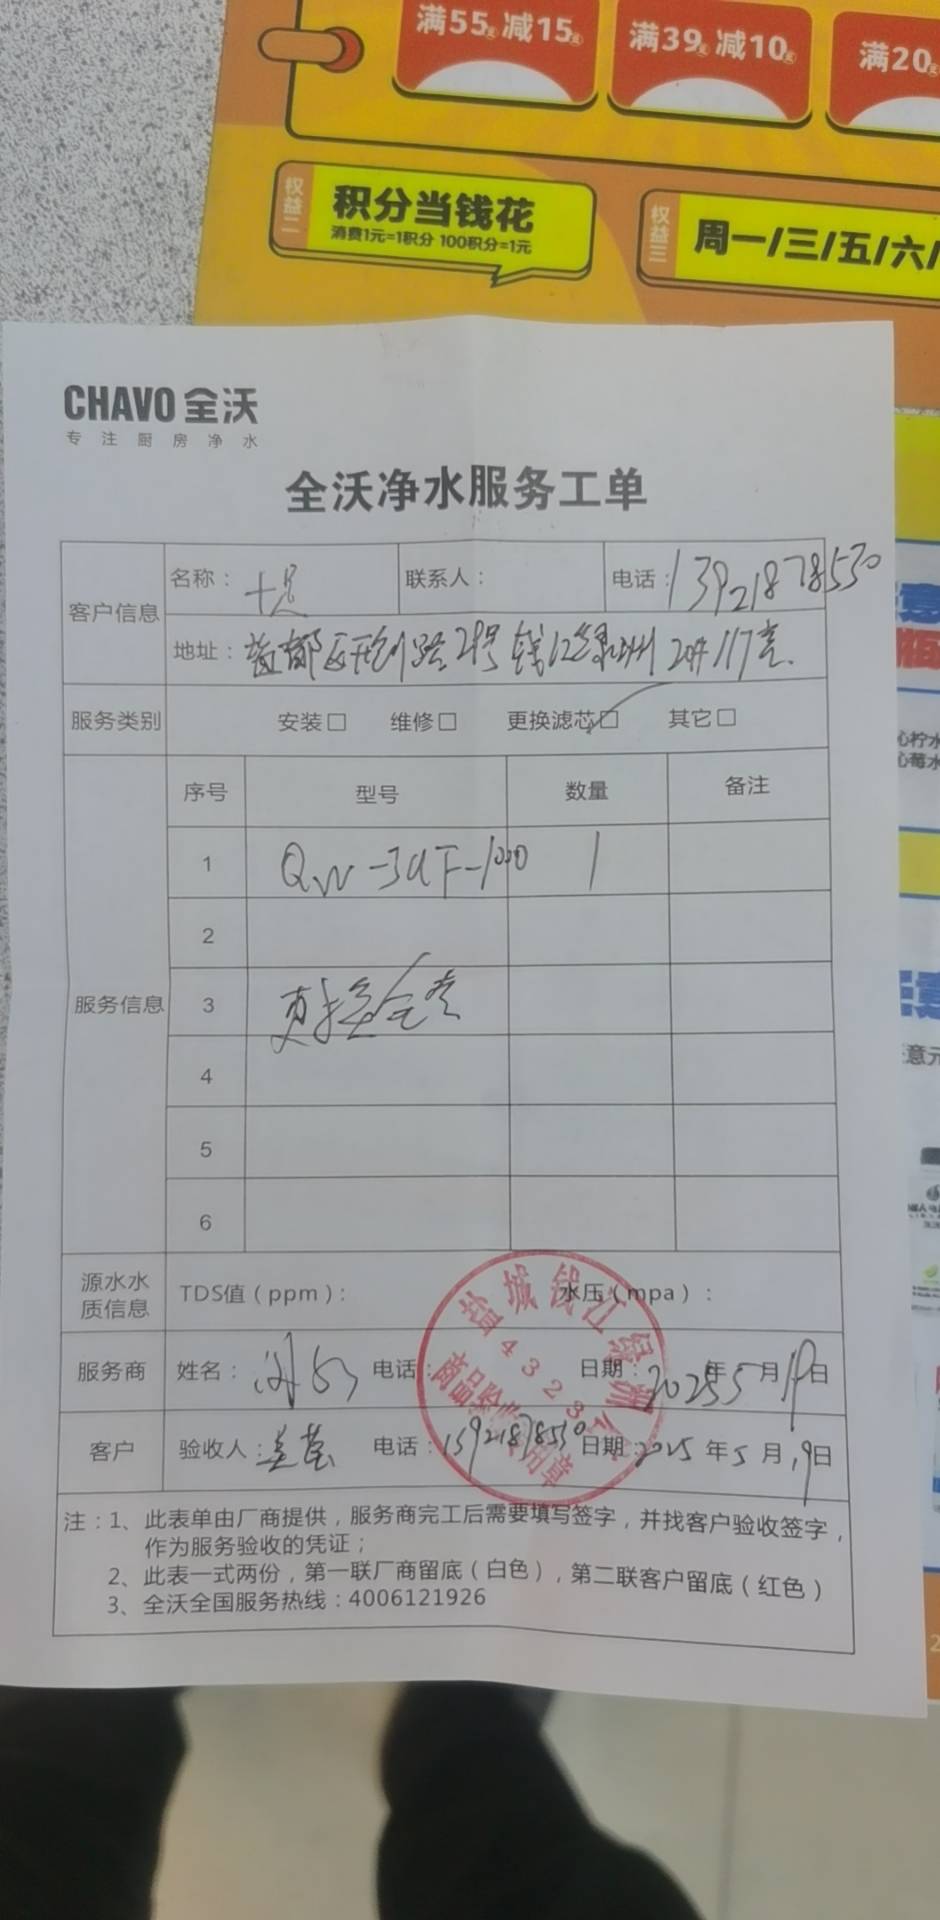 满55元减15元
满39元减10元
满20元
权益二
积分当钱花
消费1元=1积分 100积分=1元
权益三
周一/三/五/六/
CHAVO 全沃
专注厨房净水
全沃净水服务工单
客户信息
名称：
联系人：
电话：13921878530
地址：盐都区开创路29号钱江绿洲 117
服务类别
安装□ 维修□ 更换滤芯□ 其它□
服务信息
序号 型号 数量 备注
1 QW-3UF-1000 1
2
3 更换全套
4
5
6
源水水质信息
TDS值（ppm）：
水压（mpa）：
服务商
姓名：
电话：
日期：2025年5月19日
客户
验收人：
电话：13921878530
日期：2025年5月19日
盐城钱江绿洲
43232
商品验收专用章
注：1、此表单由厂商提供，服务商完工后需要填写签字，并找客户验收签字，
作为服务验收的凭证；
2、此表一式两份，第一联厂商留底（白色），第二联客户留底（红色）
3、全沃全国服务热线：4006121926
心柠水
心莓水
意元